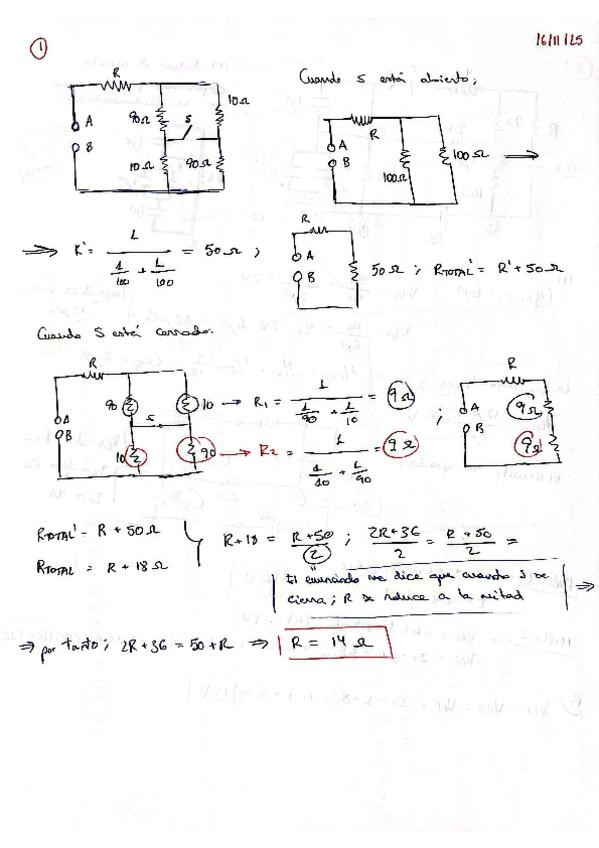 1
16/11/25
R
A
B
90Ω
10Ω
S
10Ω
90Ω
Cuando S está abierto;
R
A
B
100Ω
100Ω
⟹
⟹ R' = 1 / (1/100 + 1/100) = 50Ω ;
R
A
B
50Ω ; RTOTAL' = R' + 50Ω
Cuando S está cerrado.
R
A
B
90
10
S
10
90
→ R1 = 1 / (1/90 + 1/10) = 9Ω
→ R2 = 1 / (1/10 + 1/90) = 9Ω
;
R
A
B
9Ω
9Ω
RTOTAL' = R + 50Ω
RTOTAL = R + 18Ω
R + 18 = (R + 50)/2 ; (2R + 36)/2 = (R + 50)/2 =
El enunciado me dice que cuando S se
cierra; R se reduce a la mitad
⟹
⟹ por tanto; 2R + 36 = 50 + R ⟹ R = 14 Ω